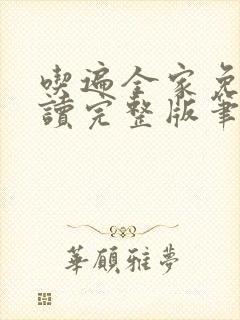 喫遍全家免
讀完整版筆
華顧雅夢